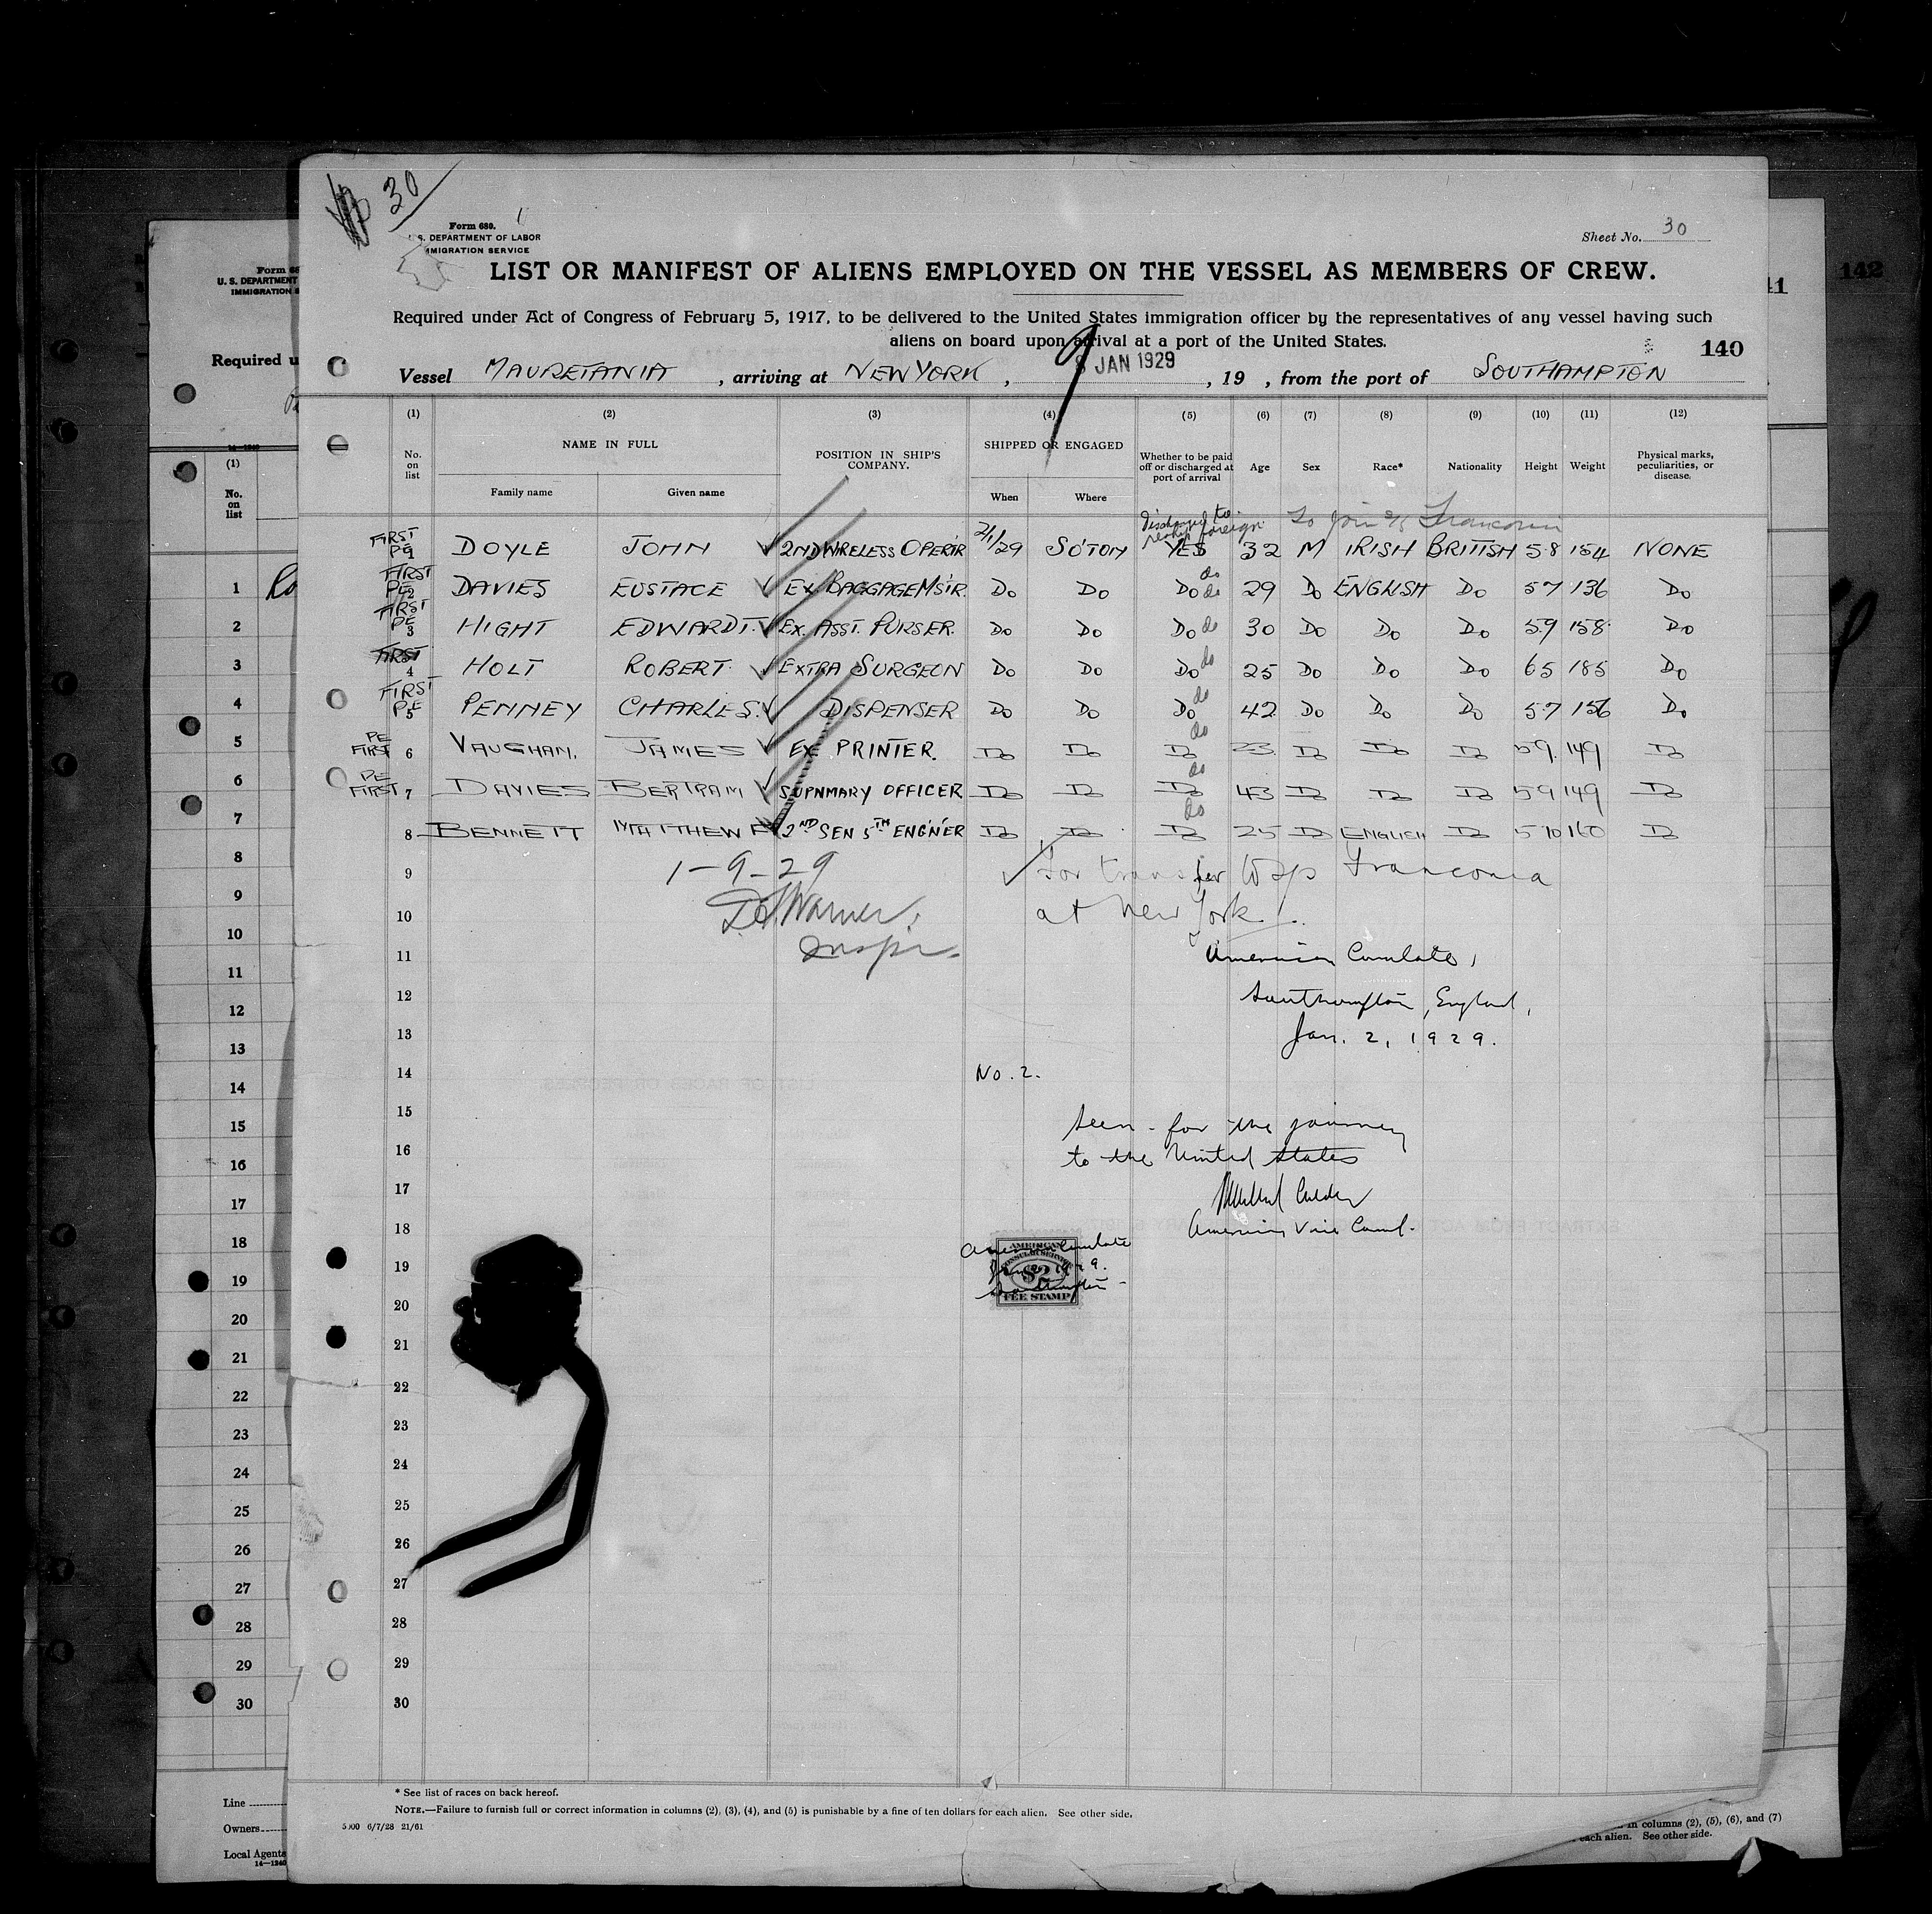 30
Form 689.
U. S. DEPARTMENT OF LABOR
IMMIGRATION SERVICE
Sheet No. 30
LIST OR MANIFEST OF ALIENS EMPLOYED ON THE VESSEL AS MEMBERS OF CREW.
Required under Act of Congress of February 5, 1917, to be delivered to the United States immigration officer by the representatives of any vessel having such
aliens on board upon arrival at a port of the United States.
140
Vessel MAURETANIA , arriving at NEW YORK , 9 JAN 1929 , 19 , from the port of SOUTHAMPTON
(1) (2) (3) (4) (5) (6) (7) (8) (9) (10) (11) (12)
No. on list
NAME IN FULL
Family name Given name
POSITION IN SHIP'S COMPANY.
SHIPPED OR ENGAGED
When Where
Whether to be paid off or discharged at port of arrival
Age Sex Race* Nationality Height Weight
Physical marks, peculiarities, or disease.
discharged to reship foreign To join s/s Franconia
FIRST PE 1 DOYLE JOHN 2ND WIRELESS OPER'TR 2/1/29 SO'TON YES 32 M IRISH BRITISH 5 8 154 NONE
FIRST PE 2 DAVIES EUSTACE EX BAGGAGE MSTR. DO DO DO do do 29 DO ENGLISH DO 5 7 136 DO
FIRST PE 3 HIGHT EDWARD T. EX. ASST. PURSER. DO DO DO do 30 DO DO DO 5 9 158 DO
FIRST 4 HOLT ROBERT. EXTRA SURGEON DO DO DO do 25 DO DO DO 6 5 185 DO
FIRST PE 5 PENNEY CHARLES. DISPENSER DO DO DO do 42 DO DO DO 5 7 156 DO
PE FIRST 6 VAUGHAN, JAMES EX PRINTER. DO DO DO do 23 DO DO DO 5 9 149 DO
PE FIRST 7 DAVIES BERTRAM SUPNMARY OFFICER DO DO DO do 43 DO DO DO 5 9 149 DO
8 BENNETT MATTHEW 2ND SEN 5TH ENGN'ER DO DO DO do 25 DO ENGLISH DO 5 10 160 DO
9 1-9-29 For transfer to s/s Franconia
10 Warner, at New York.
11 Inspr. American Consulate,
12 Southampton, England,
13 Jan. 2, 1929.
14 No. 2.
15 Seen for the journey
16 to the United States
17
18 American Vice Consul.
American Consulate
19 Jan 2 1929.
Southampton
AMERICAN
CONSULAR SERVICE
$2
FEE STAMP
20
21
22
23
24
25
26
27
28
29
30
* See list of races on back hereof.
NOTE.—Failure to furnish full or correct information in columns (2), (3), (4), and (5) is punishable by a fine of ten dollars for each alien. See other side.
5000 6/7/28 21/61
Form 68
U. S. DEPARTMENT
IMMIGRATION S
Required u
14—1240
(1)
No.
on
list
1
2
3
4
5
6
7
8
9
10
11
12
13
14
15
16
17
18
19
20
21
22
23
24
25
26
27
28
29
30
Line
Owners
Local Agents
14—1240
41
142
in columns (2), (5), (6), and (7)
each alien. See other side.